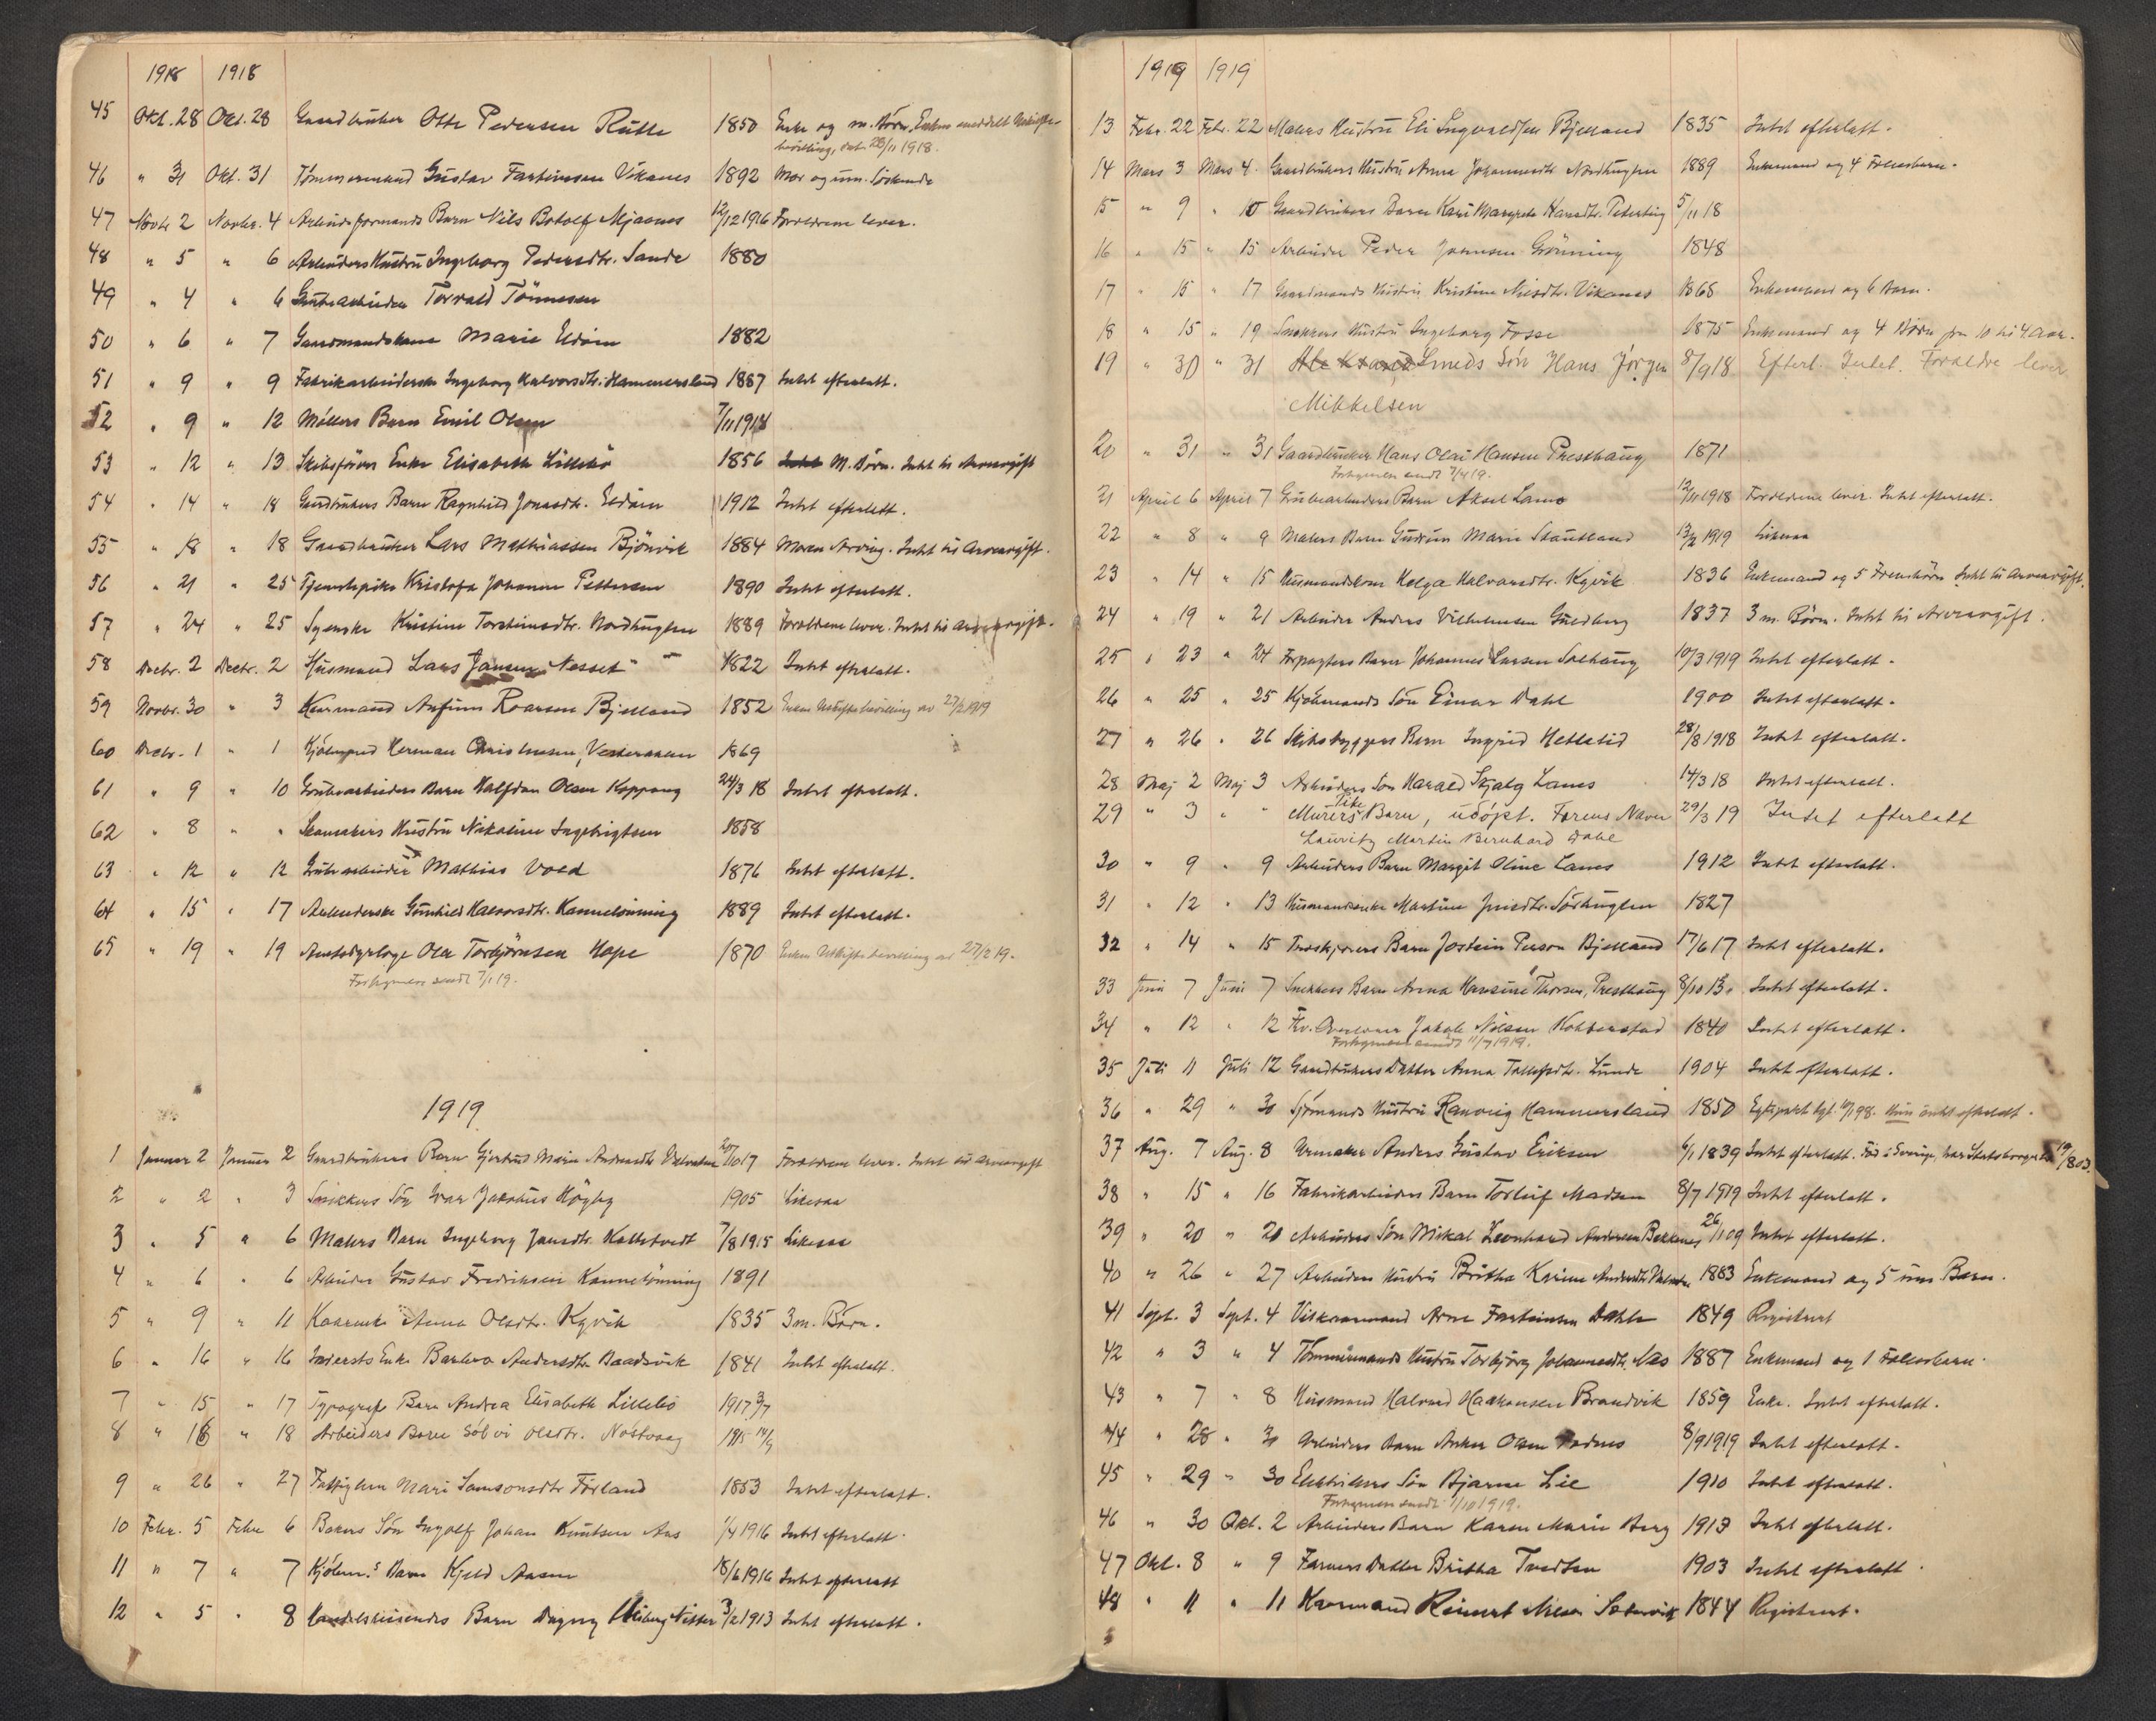 1918 1918
45 Okt. 28 Okt. 28 Gaardbruker Otto Pedersen Rutle 1850 Enke og m. Børn. Enken meddelt Uskifte-
bevilling, dat. 28/11 1918.
46 " 31 Okt. 31 Tømmermand Gustav Farteinsen Vikanes 1892 Mor og um. Søskende
47 Novbr. 2 Novbr. 4 Arbeidsformands Barn Nils Botolf Mjaanes 12/12 1916 Forældrene lever.
48 " 5 " 6 Arbeiders Hustru Ingeborg Pedersdtr. Sande 1880
49 " 4 " 6 Grubearbeider Torvald Tönnesen
50 " 6 " 7 Gaardmandskone Marie Eldøen 1882
51 " 9 " 9 Fabrikarbeiderske Ingeborg Halvorsdtr. Hammersland 1887 Intet efterlatt.
52 " 9 " 12 Møllers Barn Emil Olsen 7/11 1918
53 " 12 " 13 Skibsförers Enke Elisabeth Lillebö 1856 M. Børn. Intet til Arveavgift
54 " 14 " 18 Gaardbrukers Barn Ragnhild Jonasdtr. Eldøen 1912 Intet efterlatt.
55 " 18 " 18 Gaardbruker Lars Mathiassen Bjönvik 1884 Moren Arving. Intet til Arveavgift.
56 " 21 " 25 Tjenestepike Kristofa Johanne Pettersen 1890 Intet efterlatt.
57 " 24 " 25 Syerske Kristine Torsteinsdtr. Nordhuglen 1889 Forældrene lever. Intet til Arveavgift.
58 Decbr. 2 Decbr. 2 Husmand Lars Jansen Nesset 1822 Intet efterlatt.
59 Novbr. 30 " 3 Kaarmand Anfinn Roarsen Bjelland 1852 Enken Uskiftebevilling av 27/2 1919
60 Decbr. 1 " 1 Kjölmand Herman Christensen, 1869
61 " 9 " 10 Grubearbeiders Barn Halfdan Olsen Koppang 24/3 18 Intet efterlatt.
62 " 8 " " Skomakers Hustru Nikoline Ingebrigtsen 1858
63 " 12 " 12 Grubearbeider Mathias Vold 1876 Intet efterlatt.
64 " 15 " 17 Arbeiderske Gunhild Halvorsdtr. Kannelönning 1889 Intet efterlatt.
65 " 19 " 19 Amtsdyrlæge Ole Torbjørnsen Hope 1870 Enken Uskiftebevilling av 27/2 19.
Forhgmeln sendt 7/1 19.
1919
1 Januar 2 Januar 2 Gaardbrukers Barn Gjertrud Marie Andersdtr. 20/10 17 Forældrene lever. Intet til Arveavgift
2 " 2 " 3 Snikkers Sön Ivar Jakobus Høgøy 1905 Likesaa
3 " 5 " 6 Malers Barn Ingeborg Jansdtr. Kattetvedt 7/8 1915 Likesaa
4 " 6 " 6 Arbeider Gustav Fredriksen Kannelönning 1891
5 " 9 " 11 Kaarenke Anna Olsdtr. Kyvik 1835 3 m. Børn.
6 " 16 " 16 Inderste Enke Barbro Andersdtr. Baadsvik 1841 Intet efterlatt.
7 " 15 " 17 Typografs Barn Andrea Elisabeth Lillebö 1917 3/7
8 " 16 " 18 Arbeiders Barn Sölvi Olsdtr. Nöstvaag 1915 14/9
9 " 26 " 27 Fattiglem Mari Samsonsdtr Förland 1853 Intet efterlatt.
10 Febr. 5 Febr 6 Bakers Sön Ingolf Johan Knutsen Aas 1/4 1916 Intet efterlatt.
11 " 7 " 7 Kjölm.s Barn Kjeld Aasen 18/6 1916 Intet efterlatt
12 " 5 " 8 Handelsreisendes Barn Dagny Nitter 3/2 1913 Intet efterlatt.
1919 1919
13 Febr. 22 Febr. 22 Malers Hustru Eli Ingvaldsen Bjelland 1835 Intet efterlatt.
14 Mars 3 Mars 4. Gaardbrukers Hustru Anna Johannesdtr Nordhuglen 1889 Enkemand og 4 Fællesbarn.
15 " 9 " 10 Gaardbrukers Barn Kari Margrete Hansdtr. 5/11 18
16 " 15 " 15 Arbeider Peder Johnsen Grönning 1848
17 " 15 " 17 Gaardmands Hustru Kristine Nilsdtr. Vikanes 1868 Enkemand og 6 Barn.
18 " 15 " 19 Snekkers Hustru Ingeborg Fosse 1875 Enkemand og 4 Børn fra 10 til 4 Aar.
19 " 30 " 31 Smeds Sön Hans Jörgen 8/9 18 Efterl. Intet. Forældre lever
Mikkelsen
20 " 31 " 31 Gaardbruker Hans Olai Hansen Presthaug 1871
Forhgmeln sendt 7/4 19.
21 April 6 April 7 Grubearbeiders Barn Aksel Lanes 12/11 1918 Forældrene lever. Intet efterlatt.
22 " 8 " 9 Malers Barn Gudrun Marie Stautland 1919 Likesaa
23 " 14 " 15 Husmandskone Helga Halvorsdtr. Kyvik 1836 Enkemand og 5 Intet til Arveavgift.
24 " 19 " 21 Arbeider Anders Vilhelmsen Guldberg 1837 3 m. Börn. Intet til Arveavgift.
25 " 23 " 24 Forpagters Barn Johannes Larsen Solhaug 10/3 1919 Intet efterlatt.
26 " 25 " 25 Kjölmands Sön Einar Dahl 1900 Intet efterlatt.
27 " 26 " 26 Skibsbyggers Barn Ingrid Hetlelid 28/8 1918 Intet efterlatt.
28 Maj 2 Maj 3 Arbeiders Sön Harald Skjalg Lanes 14/3 18 Intet efterlatt.
29 " 3 " " Murers Pike Barn, udöpt. Farens Navn 29/3 19 Intet efterlatt
Lauritz Martin Bernhard Dahl
30 " 9 " 9 Arbeiders Barn Margit Oline Lanes 1912 Intet efterlatt.
31 " 12 " 13 Husmandsenke Martine Sörhuglen 1827
32 " 14 " 15 Barn Jostein Person Bjelland 17/6 17 Intet efterlatt.
33 Juni 7 Juni 7 Snekkers Barn Anna Hansine Thorsen, Presthaug 8/10 13. Intet efterlatt.
34 " 12 " 12 Fhv. Overlærer Jakob Nilsen Kobberstad 1840 Intet efterlatt.
Forhgmeln sendt 11/7 1919.
35 Juli 11 Juli 12 Gaardbrukers Datter Anna Lunde 1904 Intet efterlatt.
36 " 29 " 30 Sjömands Hustru Ranveig Hammersland 1850 Hun intet efterlatt.
37 Aug. 7 Aug. 8 Urmaker Anders Gustav Eriksen 6/1 1839 Intet efterlatt. Född i Sverige, har Statsborgerbr.
38 " 15 " 16 Fabrikarbeiders Barn Torleif Madsen 8/7 1919 Intet efterlatt.
39 " 20 " 20 Arbeiders Sön Mikal Leonhard Andersen Bekkenes 26/1 09 Intet efterlatt.
40 " 26 " 27 Arbeiders Hustru Britha Karine Andersdtr. 1883 Enkemand og 5 um Barn.
41 Sept. 3 Sept. 4 Vilkaarsmand Arne Farteinsen Dahle 1849 Registrert
42 " 3 " 4 Tömmermands Hustru Torbjörg Johannesdtr. Næs 1887 Enkemand og 1 Fællesbarn.
43 " 7 " 8 Husmand Halvard Haakonsen Brandvik 1859 Enke. Intet efterlatt.
44 " 28 " 30 Arbeiders Barn Anker Olsen 8/9 1919 Intet efterlatt.
45 " 29 " 30 Elektrikers Sön Bjarne Lie 1910 Intet efterlatt.
Forhgmeln sendt 1/10 1919.
46 " 30 Okt. 2 Arbeiders Barn Karen Marie Berg 1913 Intet efterlatt.
47 Okt. 8 " 9 Farvers Datter Britha Tvedten 1903 Intet efterlatt.
48 " 11 " 11 Kaarmand Reinert 1844 Registrert.